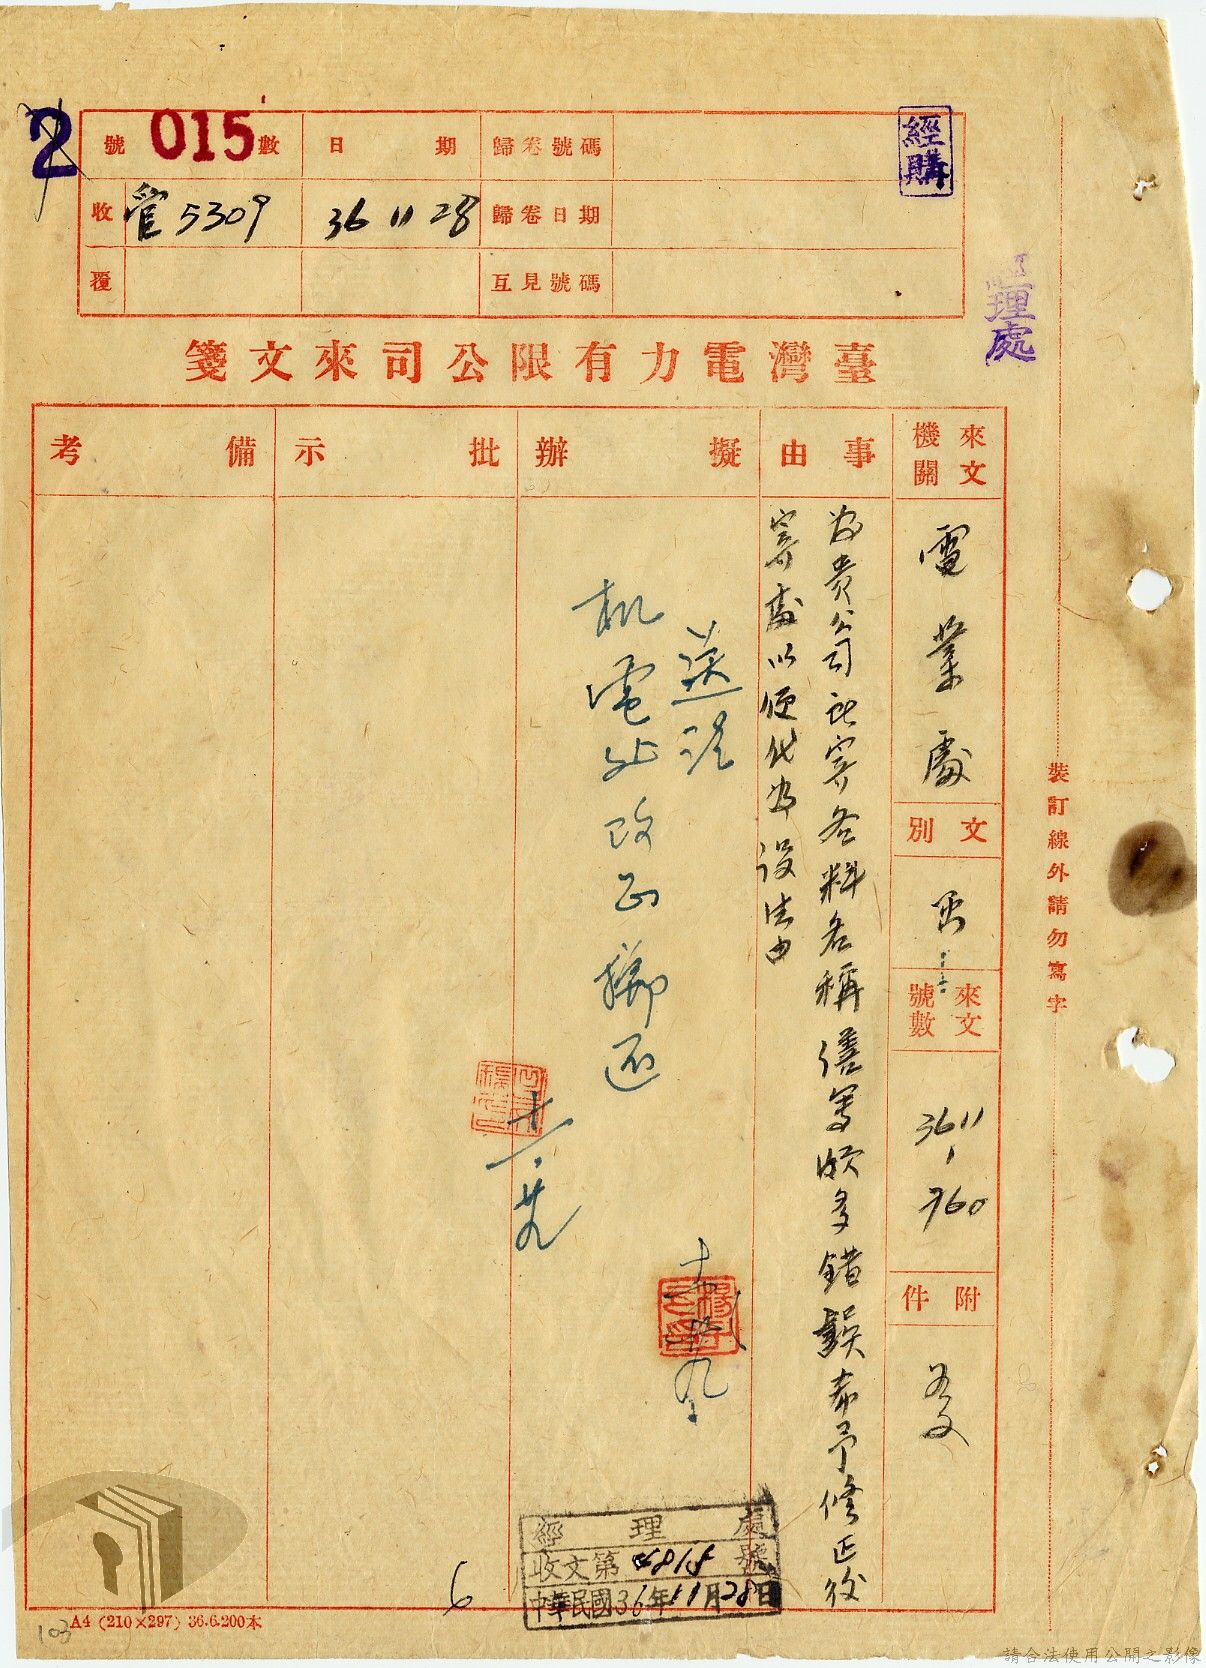 2
號 015 數
日期
歸卷號碼
收 管5309
36 11 28
歸卷日期
覆
互見號碼
經購
經理處
臺灣電力有限公司來文箋
來文機關
電業處
文別
來文號數
3611
960
附件
事由
為貴公司託寄各料名稱繕寫頗多錯誤希予修正後
寄處以便代為設法由
擬辦
送請
机電處改正擲還
批示
備考
十一.廿九
經理處
收文第4818號
中華民國36年11月28日
裝訂線外請勿寫字
6
103
A4 (210×297) 36.6.200本
請合法使用公開之影像